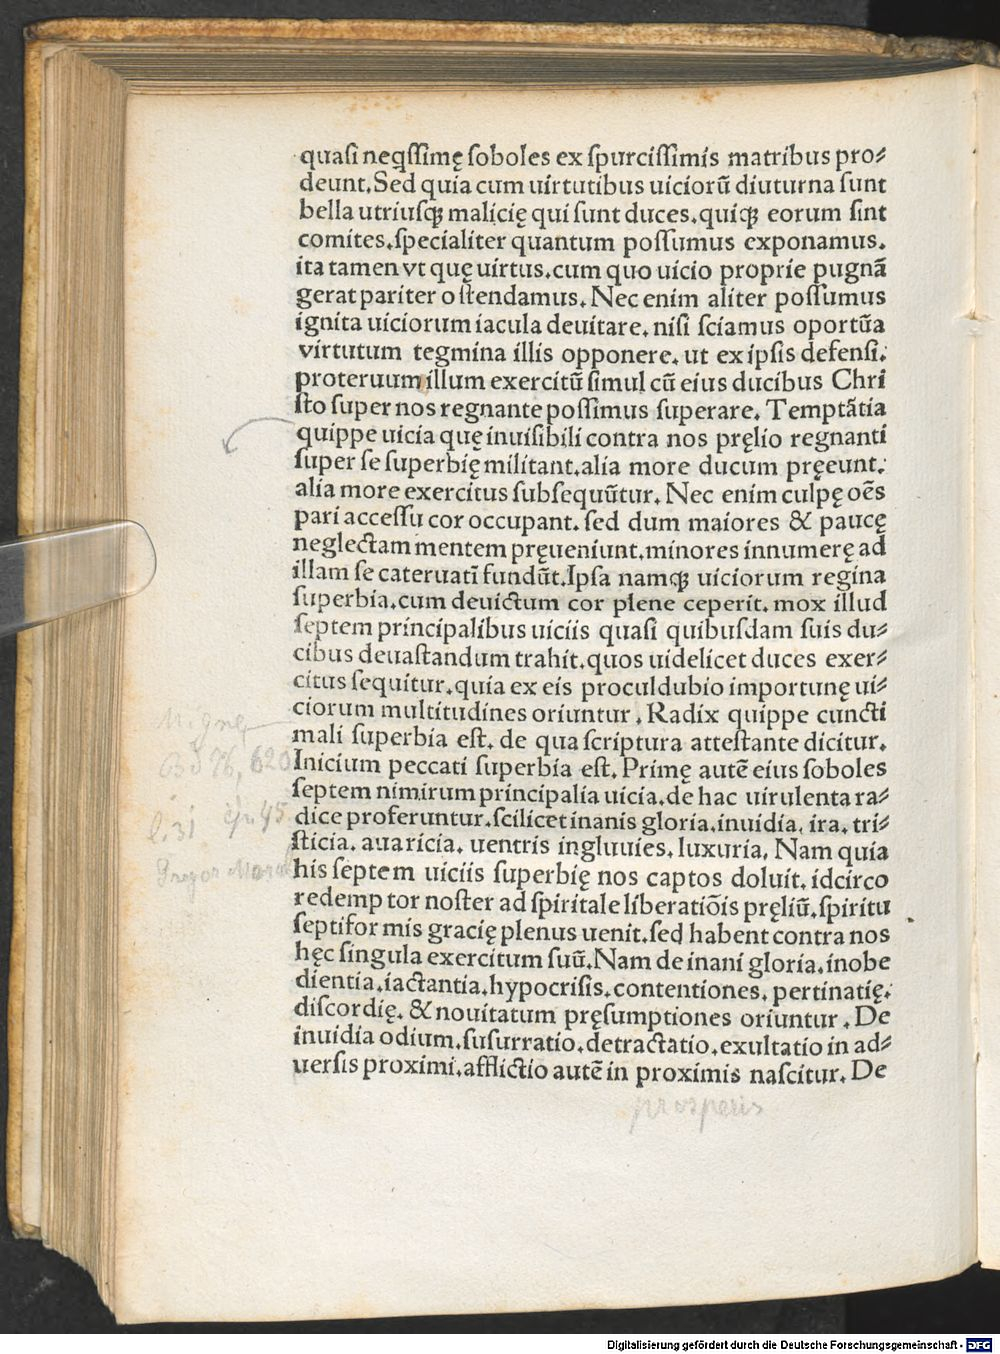 quaſi neqſſimę ſoboles ex ſpurciſſimis matribus pro⸗
deunt. Sed quia cum uirtutibus uiciorū diuturna ſunt
bella utriuſqꝫ malicię qui ſunt duces. quiqꝫ eorum ſint
comites. ſpecialiter quantum poſſumus exponamus.
ita tamen vt quę uirtus. cum quo uicio proprie pugnā
gerat pariter oſtendamus. Nec enim aliter poſſumus
ignita uiciorum iacula deuitare. niſi ſciamus oportūa
virtutum tegmina illis opponere. ut ex ipſis defenſi.
proteruum illum exercitū ſimul cū eius ducibus Chri
ſto ſuper nos regnante poſſimus ſuperare. Temptātia
quippe uicia quę inuiſibili contra nos pręlio regnanti
ſuper ſe ſuperbię militant. alia more ducum pręeunt.
alia more exercitus ſubſequūtur. Nec enim culpę oēs
pari acceſſu cor occupant. ſed dum maiores & paucę
neglectam mentem pręueniunt. minores innumerę ad
illam ſe cateruatī fundūt. Ipſa namqꝫ uiciorum regina
ſuperbia. cum deuictum cor plene ceperit. mox illud
ſeptem principalibus uiciis quaſi quibuſdam ſuis du⸗
cibus deuaſtandum trahit. quos uidelicet duces exer⸗
citus ſequitur. quia ex eis proculdubio importunę ui⸗
ciorum multitudines oriuntur. Radix quippe cuncti
mali ſuperbia eſt. de qua ſcriptura atteſtante dicitur.
Inicium peccati ſuperbia eſt. Primę autē eius ſoboles
ſeptem nimirum principalia uicia. de hac uirulenta ra⸗
dice proferuntur. ſcilicet inanis gloria. inuidia. ira. tri⸗
ſticia. auaricia. uentris ingluuies. luxuria. Nam quia
his ſeptem uiciis ſuperbię nos captos doluit. idcirco
redemptor noſter ad ſpiritale liberatiōis pręliū. ſpiritu
ſeptiformis gracię plenus uenit. ſed habent contra nos
hęc ſingula exercitum ſuū. Nam de inani gloria. inobe
dientia. iactantia. hypocriſis. contentiones. pertinatię.
diſcordię. & nouitatum pręſumptiones oriuntur. De
inuidia odium. ſuſurratio. detractatio. exultatio in ad⸗
uerſis proximi. afflictio autē in proximis naſcitur. De
prosperis
Migne
Bd 76, 620
l. 31 45
Gregor Moral
Digitalisierung gefördert durch die Deutsche Forschungsgemeinschaft - DFG